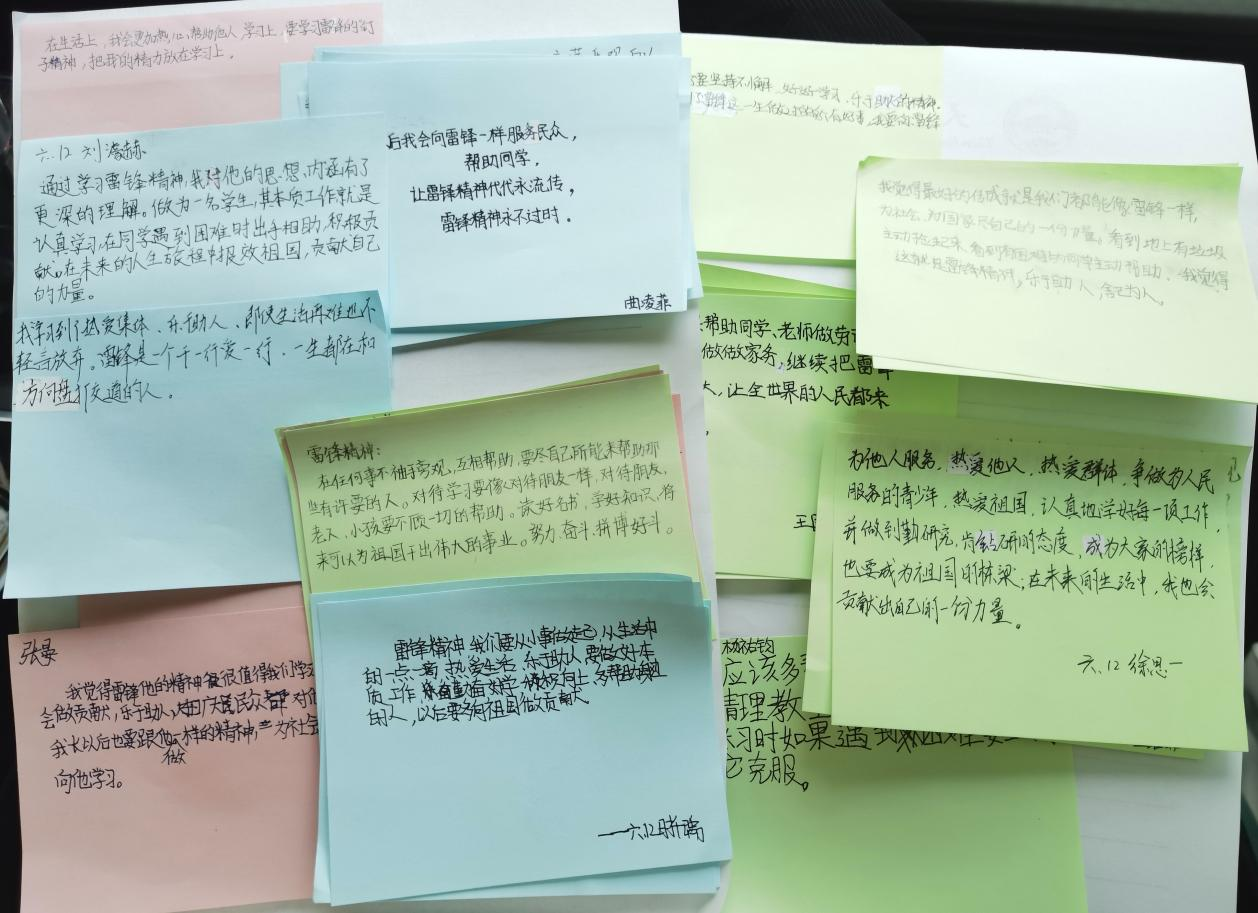 在生活上，我会更加热心，帮助他人，学习上，要学习雷锋的钉
子精神，把我的精力放在学习上。
六.12 刘濬赫
通过学习雷锋精神，我对他的思想、内涵有了
更深的理解。做为一名学生，其本质工作就是
认真学习，在同学遇到困难时出手相助，积极贡
献，在未来的人生旅程中报效祖国，贡献自己
的力量。
我学习到了热爱集体、乐于助人、即使生活再难也不
轻言放弃。雷锋是一个干一行爱一行，一生都在和
方向盘打交道的人。
后我会向雷锋一样服务民众，
帮助同学，
让雷锋精神代代永流传，
雷锋精神永不过时。
曲凌菲
要坚持不懈，好好学习，乐于助人的精神。
我觉得最好的信成就是我们都能像雷锋一样，
为社会，为国家尽自己的一份力量。看到地上有垃圾
主动捡起来，看到有困难的同学主动帮助，我觉得
这就是雷锋精神，乐于助人，舍己为人。
帮助同学、老师做劳
做做家务，继续把雷锋
大，让全世界的人民都来
雷锋精神：
在任何事不袖手旁观，互相帮助，要尽自己所能来帮助那
些有许要的人。对待学习要像对待朋友一样，对待朋友，
老人，小孩要不顾一切的帮助。读好名书，学好知识，将
来可以为祖国干出伟大的事业。努力、奋斗、拼博好斗。
为他人服务，热爱他人，热爱群体，争做为人民
服务的青少年，热爱祖国，认真地学好每一项工作，
并做到勤研究，肯钻研的态度，成为大家的榜样，
也要成为祖国的栋梁；在未来的生活中，我也会
贡献出自己的一份力量。
六.12 徐恩一
张曼
我觉得雷锋他的精神很值得我们学习
会做贡献，乐于助人，广大民众都对他
我长以后也要跟他一样的精神，为社会
做
向他学习。
雷锋精神 我们要从小事做起，从生活中
的一点一滴，热爱生活，乐于助人，要做好本
质工作 积极向上，多帮助
的人，以后要多向祖国做贡献。
——六.12
应该多
清理教
练习时如果遇到困难
它克服。